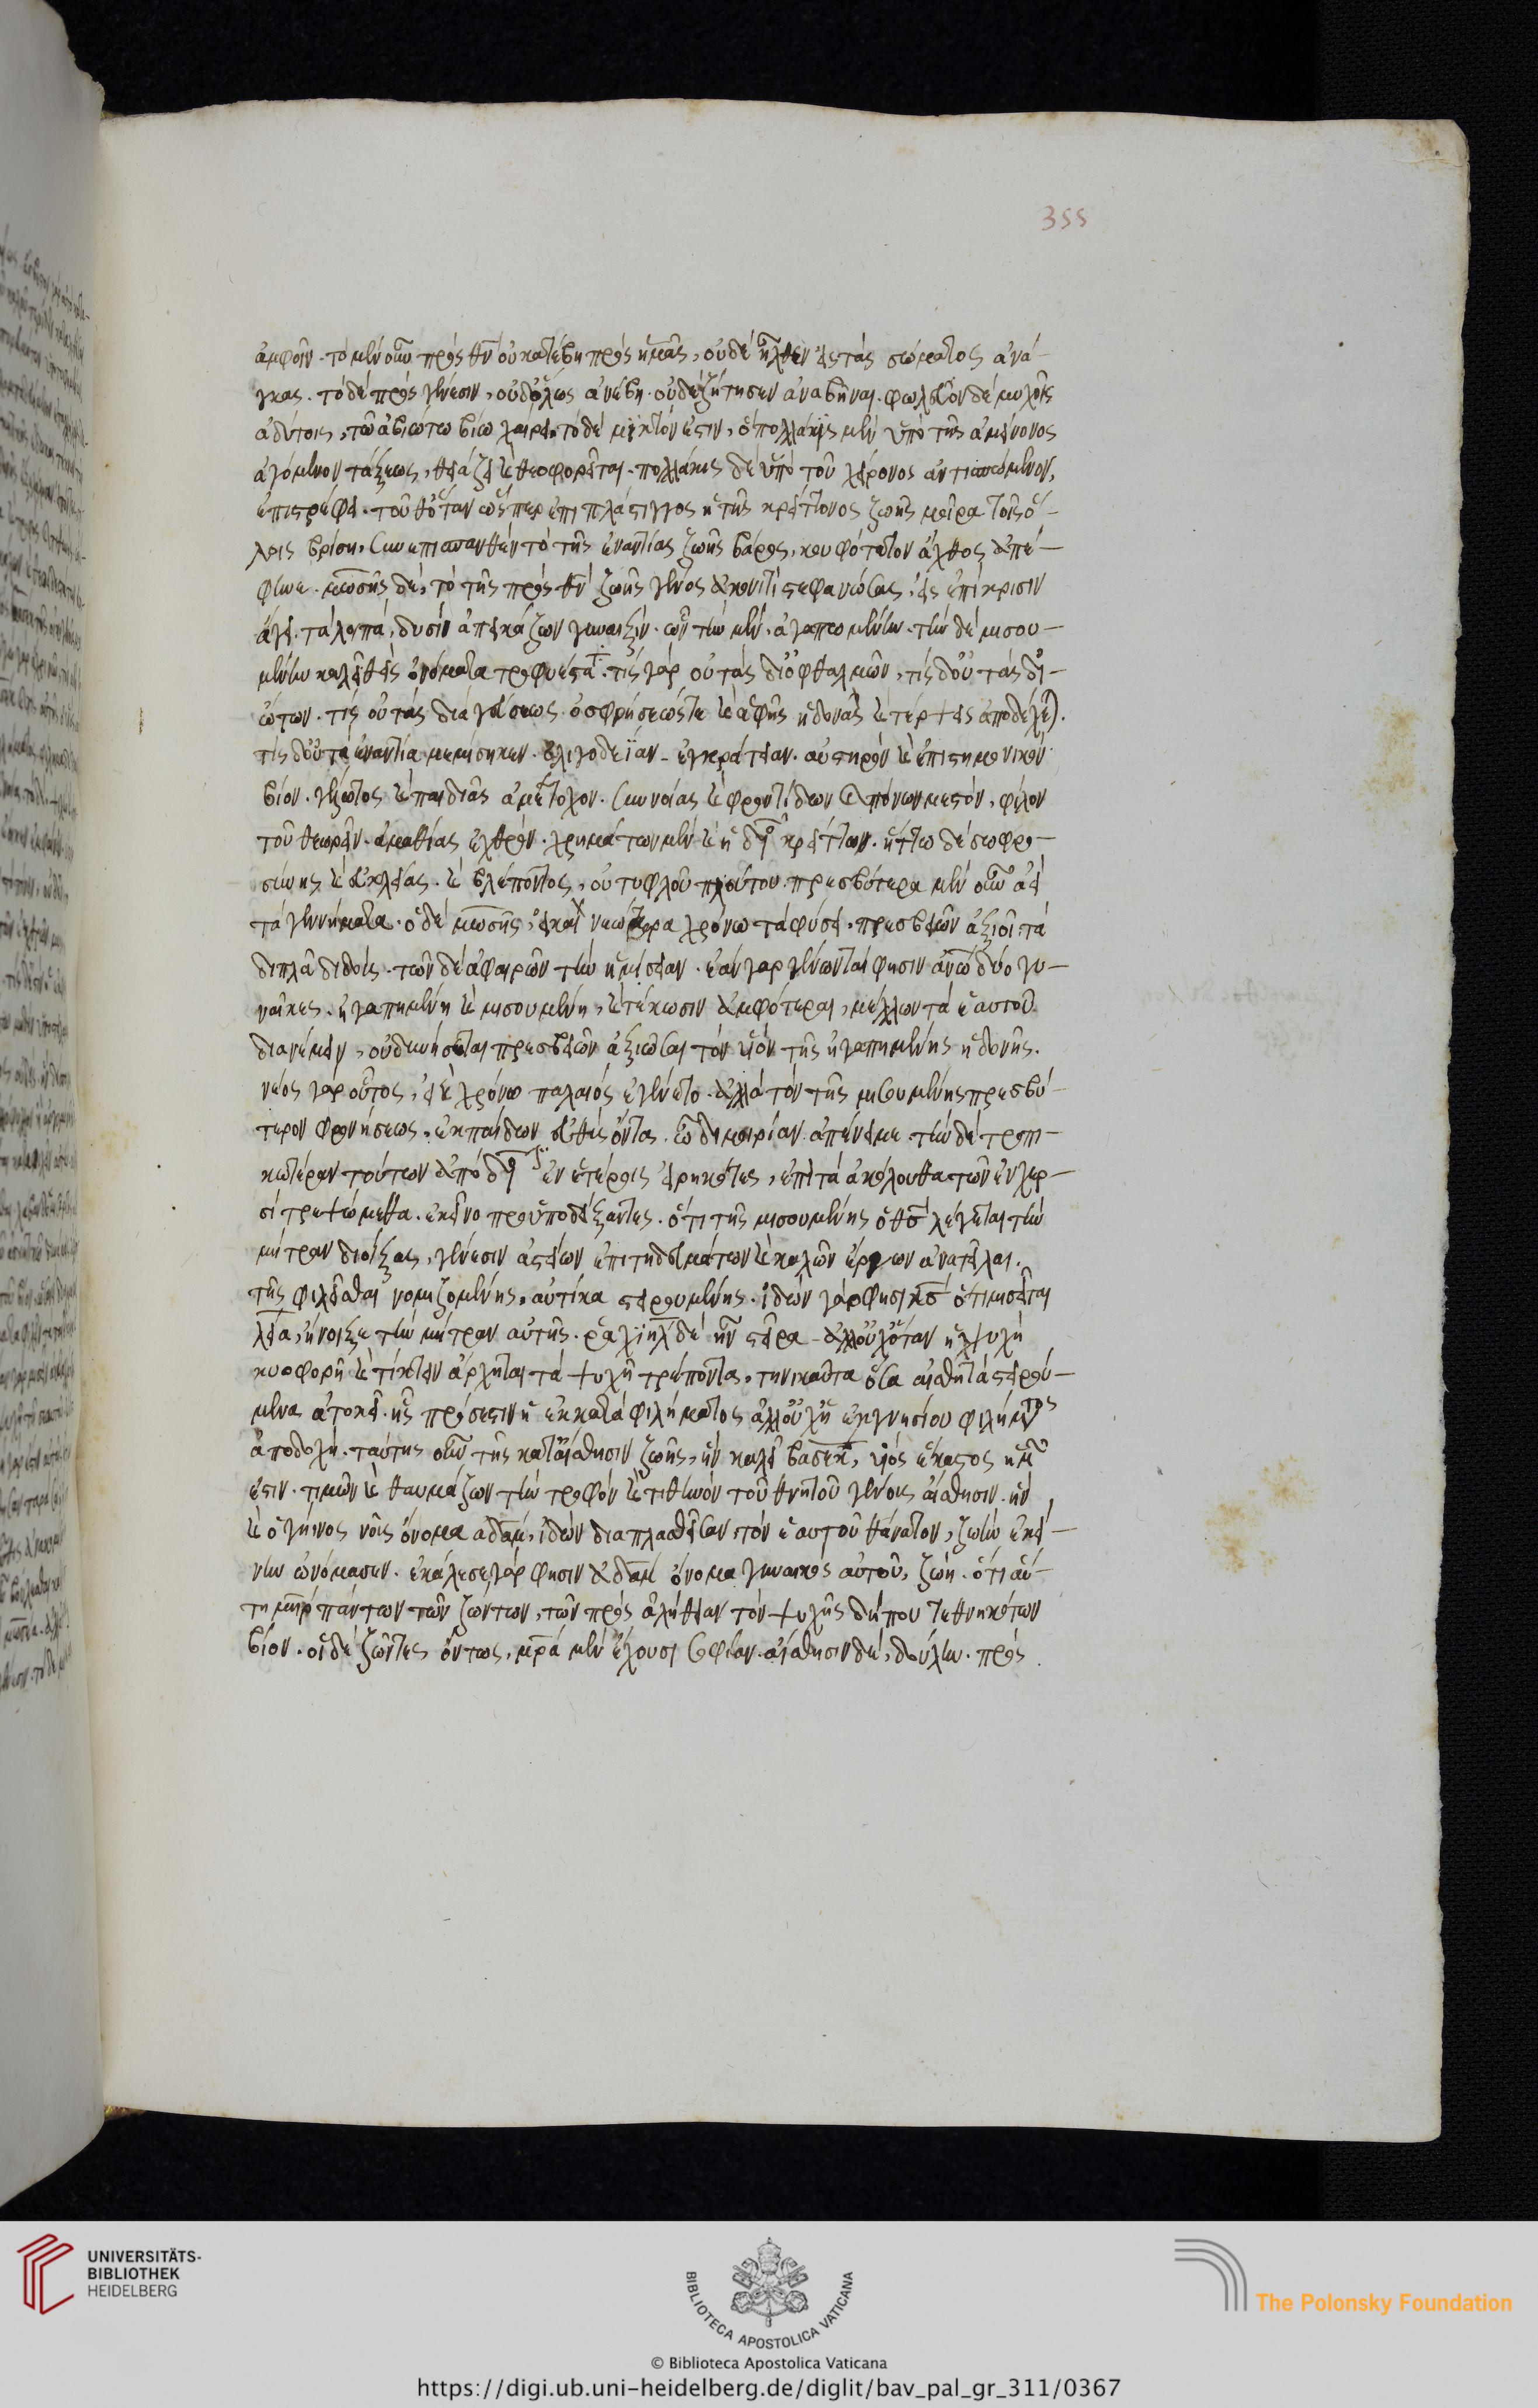 ἀμφοῖν. τὸ μὲν οὖν πρὸς θν οὐ κατέβη πρὸς ἡμᾶς, οὐδὲ ἦλθεν εἰς τὰς σώματος ἀνά-
γκας. τὸ δὲ πρὸς γένεσιν, οὐδ' ὅλως ἀνέβη. οὐδ' ἐζήτησεν ἀναβῆναι. φωλεῦον δὲ μυχοῖς
ἀδύτοις, τῶ ἀβιώτω βίω χαίρει, τὸ δὲ μικτόν ἐστιν, ὃ πολλάκις μὲν ὑπὸ τῆς ἀμείνονος
ἀγόμενον τάξεως, θειάζει καὶ θεοφορεῖται. πολλάκις δὲ ὑπὸ τοῦ χείρονος ἀντισπώμενον,
ἐπιστρέφει. τοῦθ' ὅταν ὥσπερ ἐπὶ πλάστιγγος ἡ τῆς κρείττονος ζωῆς μοῖρα τοῖς ὅ-
λοις βρίση, συνεπισπασθὲν τὸ τῆς ἐναντίας ζωῆς βάρος, κουφότατον ἄχθος ἀπέ-
φηνε. μωσῆς δὲ, τὸ τῆς πρὸς θν ζωῆς γένος ἀκονιτὶ στεφανώσας, εἰς ἐπίκρισιν
ἄγει. τὰ λοιπὰ, δυσὶν ἀπεικάζων γυναιξίν. ὧν τὴν μὲν, ἀγαπωμένην. τὴν δὲ μισου-
μένην καλεῖ θεὶς ὀνόματα προσφυέστατα. τίς γὰρ οὐ τὰς δι' ὀφθαλμῶν, τίς δ' οὐ τὰς δι'
ὤτων. τίς οὐ τὰς διὰ γεύσεως. ὀσφρήσεώς τε καὶ ἁφῆς ἡδονὰς καὶ τέρψεις ἀποδέχεται.
τίς δ' οὐ τὰ ἐναντία μεμίσηκεν. ὀλιγοδεΐαν. ἐγκράτειαν. αὐστηρὸν καὶ ἐπιστημονικὸν
βίον. γέλωτος καὶ παιδιᾶς ἀμέτοχον. συννοίας καὶ φροντίδων καὶ πόνων μεστόν. φίλον
τοῦ θεωρεῖν. ἀμαθίας ἐχθρόν. χρημάτων μὲν καὶ ἡδονῆς κρείττων. ἥττω δὲ σωφρο-
σύνης καὶ εὐκλείας. καὶ βλέποντος, οὐ τυφλοῦ πλούτου. πρεσβύτερα μὲν οὖν ἀεὶ
τὰ γεννήματα. ὁ δὲ μωσῆς, εἰ καὶ νεώτερα χρόνω τὰ φύσει, πρεσβείων ἀξιοῖ. τὰ
διπλᾶ διδοὺς. τῶν δὲ ἀφαιρῶν τὴν ἡμίσειαν. ἐὰν γὰρ γένωνται φησὶν ανω δύο γυ-
ναῖκες. ἠγαπημένη καὶ μισουμένη, καὶ τέκωσιν ἀμφότεραι, μέλλων τὰ ἑαυτοῦ
διανέμειν, οὐ δυνήσεται πρεσβείων ἀξιῶσαι τὸν υἱὸν τῆς ἠγαπημένης ἡδονῆς.
νέος γὰρ οὗτος, εἰ καὶ χρόνω παλαιὸς ἐγένετο. ἀλλὰ τὸν τῆς μισουμένης πρεσβύ-
τερον φρονήσεως, ἐκ παίδων εὐθὺς ὄντα. ὡς διμοιρίαν ἀπένειμε. τὴν δὲ τροπι-
κωτέραν τούτων ἀπόδοσιν ἐν ἑτέροις εἰρηκότες, ἐπὶ τὰ ἀκόλουθα τῶν ἐν χερ-
σὶ τρεψώμεθα. ἐκεῖνο προϋποδείξαντες. ὅτι τῆς μισουμένης ὁ θσ λέγεται τὴν
μήτραν διοίξας, γένεσιν ἀστείων ἐπιτηδευμάτων καὶ καλῶν ἔργων ἀνατεῖλαι.
τῆς φιλεῖσθαι νομιζομένης, αὐτίκα στειρουμένης. ἰδὼν γάρ φησι κσ ὅτι μισεῖται
λεία, ἤνοιξε τὴν μήτραν αὐτῆς. ραχιὴλ δὲ ἦν στεῖρα. ἀλλ' οὐχ ὅταν ἡ ψυχὴ
κυοφορῆ καὶ τίκτειν ἄρχηται τὰ ψυχῆ πρέποντα, τηνικαῦτα ὅσα αἰσθητὰ στειρού-
μενα ἀτοκεῖ. ἧς πρόσεστιν ἡ ἐκ καταφιλήματος ἀλλ' οὐχ ἡ ἐκ γνησίου φιλήματος
ἀποδοχή. ταύτης οὖν τῆς κατ' αἴσθησιν ζωῆς, ἣν καλεῖ βασεκ, υἱὸς ἕκαστος ἡμῶν
ἐστιν. τιμῶν καὶ θαυμάζων τὴν τροφὸν καὶ τιθηνὸν τοῦ θνητοῦ γένους αἴσθησιν. ἣν
καὶ ὁ γήινος νοῦς ὄνομα αδαμ, ἰδὼν διαπλασθεῖσαν, τὸν ἑαυτοῦ θάνατον, ζωὴν ἐκεί-
νην ὠνόμασεν. ἐκάλεσε γάρ φησιν ἀδαμ ὄνομα γυναικὸς αὐτοῦ, ζωή. ὅτι αὕ-
τη μηρ πάντων τῶν ζώντων, τῶν πρὸς ἀλήθειαν τὸν ψυχῆς δήπου τεθνηκότων
βίον. οἱ δὲ ζῶντες ὄντως, μρα μὲν ἔχουσι σοφίαν. αἴσθησιν δὲ, δούλην. πρὸς
355
UNIVERSITÄTS-
BIBLIOTHEK
HEIDELBERG
BIBLIOTECA APOSTOLICA VATICANA
© Biblioteca Apostolica Vaticana
The Polonsky Foundation
https://digi.ub.uni-heidelberg.de/diglit/bav_pal_gr_311/0367